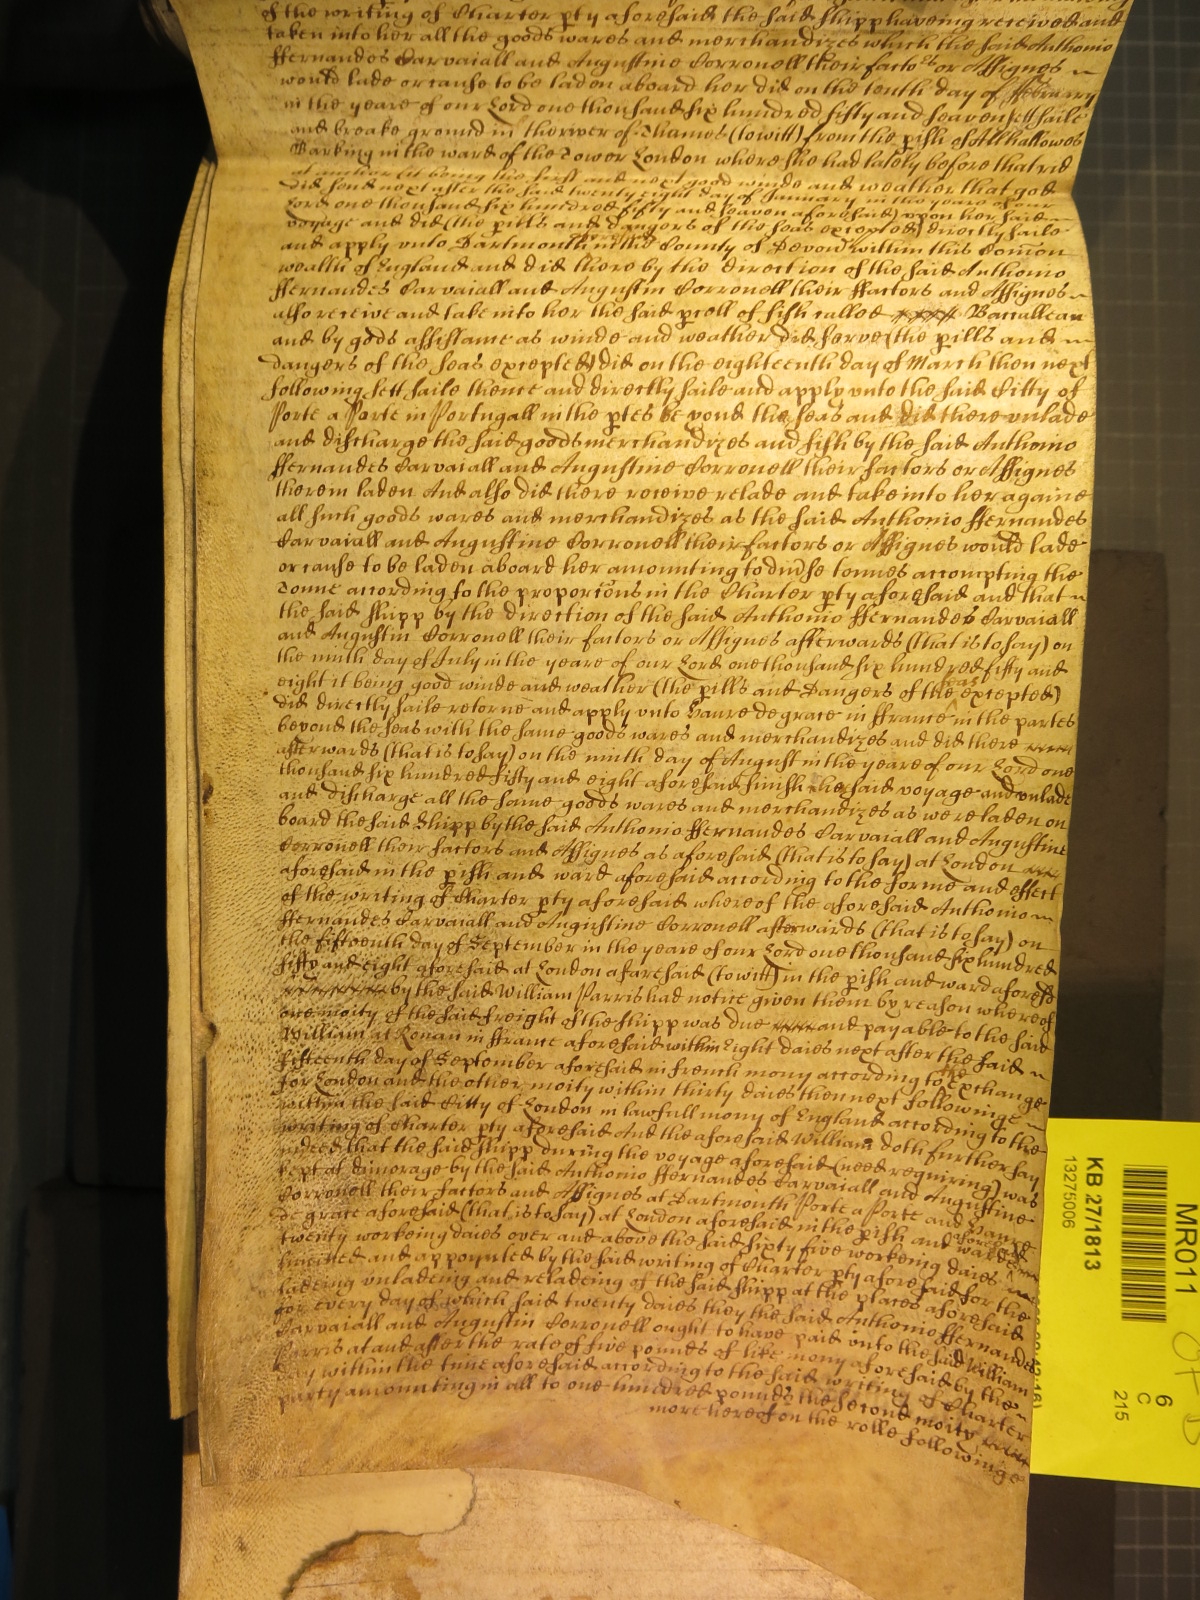 of the writing of Charter pty aforesaid the said shipp haveing received and
taken into her all the goods wares and merchandizes which the said Anthonio
ffernandes Carvaiall and Augustine Corronell their factors or Assignes
would lade or cause to be laden aboard her did on the tenth day of ffebruary
in the yeare of our Lord one thousand six hundred fifty and seaven sett saile
and breake ground in the river of Thames (to witt) from the pish of Allhallowes
Barking in the ward of the Tower London where she had lately before that rid
at anchor (it being the first and next good winde and weather that god
did send next after the said twenty eight day of January in the yeare of our
Lord one thousand six hundred fifty and seaven aforesaid) upon her said
voyage and did (the pills and dangers of the seas excepted) directly saile
and apply unto Dartmouth in the County of Devon within this Comon
wealth of England and did there by the direction of the said Anthonio
ffernandes Carvaiall and Augustin Corronell their ffactors and Assignes
also receive and take into her the said pcell of fish called Baccallean
and by gods assistance as winde and weather did serve (the pills and
dangers of the seas excepted) did on the eighteenth day of March then next
following sett saile thence and directly saile and apply unto the said Citty of
Porte a Porte in Portugall in the ptes beyond the seas and did there unlade
and discharge the said goods merchandizes and fish by the said Anthonio
ffernandes Carvaiall and Augustine Corronell their factors or Assignes
therein laden And also did there receive relade and take into her againe
all such goods wares and merchandizes as the said Anthonio ffernandes
Carvaiall and Augustine Corronell their factors or Assignes would lade
or cause to be laden aboard her amounting to divse tonnes accompting the
Tonne according to the proporcons in the Charter pty aforesaid and that
the said shipp by the direction of the said Anthonio ffernandes Carvaiall
and Augustin Corronell their factors or Assignes afterwards (that is to say) on
the ninth day of July in the yeare of our Lord one thousand six hundred fifty and
eight it being good winde and weather (the pills and Dangers of the seas excepted)
did directly saile retorne and apply unto Havre de grace in ffrance in the partes
beyond the seas with the same goods wares and merchandizes and did there
afterwards (that is to say) on the ninth day of August in the yeare of our Lord one
thousand six hundred fifty and eight aforesaid finish the said voyage and unlade
and discharge all the same goods wares and merchandizes as were laden on
board the said Shipp by the said Anthonio ffernandes Carvaiall and Augustine
Corronell their factors and Assignes as aforesaid (that is to say) at London
aforesaid in the pish and ward aforesaid according to the forme and effect
of the writing of Charter pty aforesaid whereof the aforesaid Anthonio
ffernandes Carvaiall and Augustine Corronell afterwards (that is to say) on
the fifteenth day of September in the yeare of our Lord one thousand six hundred
fifty and eight aforesaid at London aforesaid (to witt) in the pish and ward aforesd
by the said William Parris had notice given them by reason whereof
one moity of the said freight of the shipp was due and payable to the said
William at Rouan in ffrance aforesaid within Eight daies next after the said
fifteenth day of September aforesaid in french mony according to the Exchange
for London and the other moity within thirty daies then next followinge
within the said Citty of London in lawfull mony of England according to the
writing of Charter pty aforesaid And the aforesaid William doth further say
indeed that the said shipp during the voyage aforesaid (need requiring) was
kept at dimorage by the said Anthonio ffernandes Carvaiall and Augustine
Corronell their factors and Assignes at Dartmouth Porte a Porte and Havre
de grace aforesaid (that is to say) at London aforesaid in the pish and ward aforesaid
twenty workeing daies over and above the said sixty five workeing daies
limitted and appoynted by the said writing of Charter pty aforesaid for the
ladeing unladeing and reladeing of the said shipp at the places aforesaid
for every day of which said twenty daies they the said Anthonio ffernandes
Carvaiall and Augustin Corronell ought to have paid unto the said William
Parris at and after the rate of five pounds of like mony aforesaid by the
day within the time aforesaid according to the said writing of Charter
party amounting in all to one hundred pounds the second moity
more hereof on the rolle followinge
MR011
KB 27/1813
13275006
6
C
215